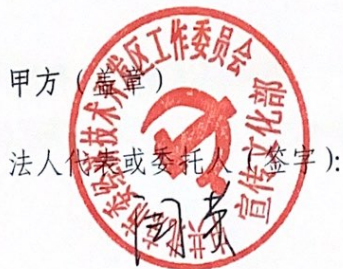 甲方（盖章）
法人代表或委托人（签字）：
技术开发区工作委员会
宣传文化部